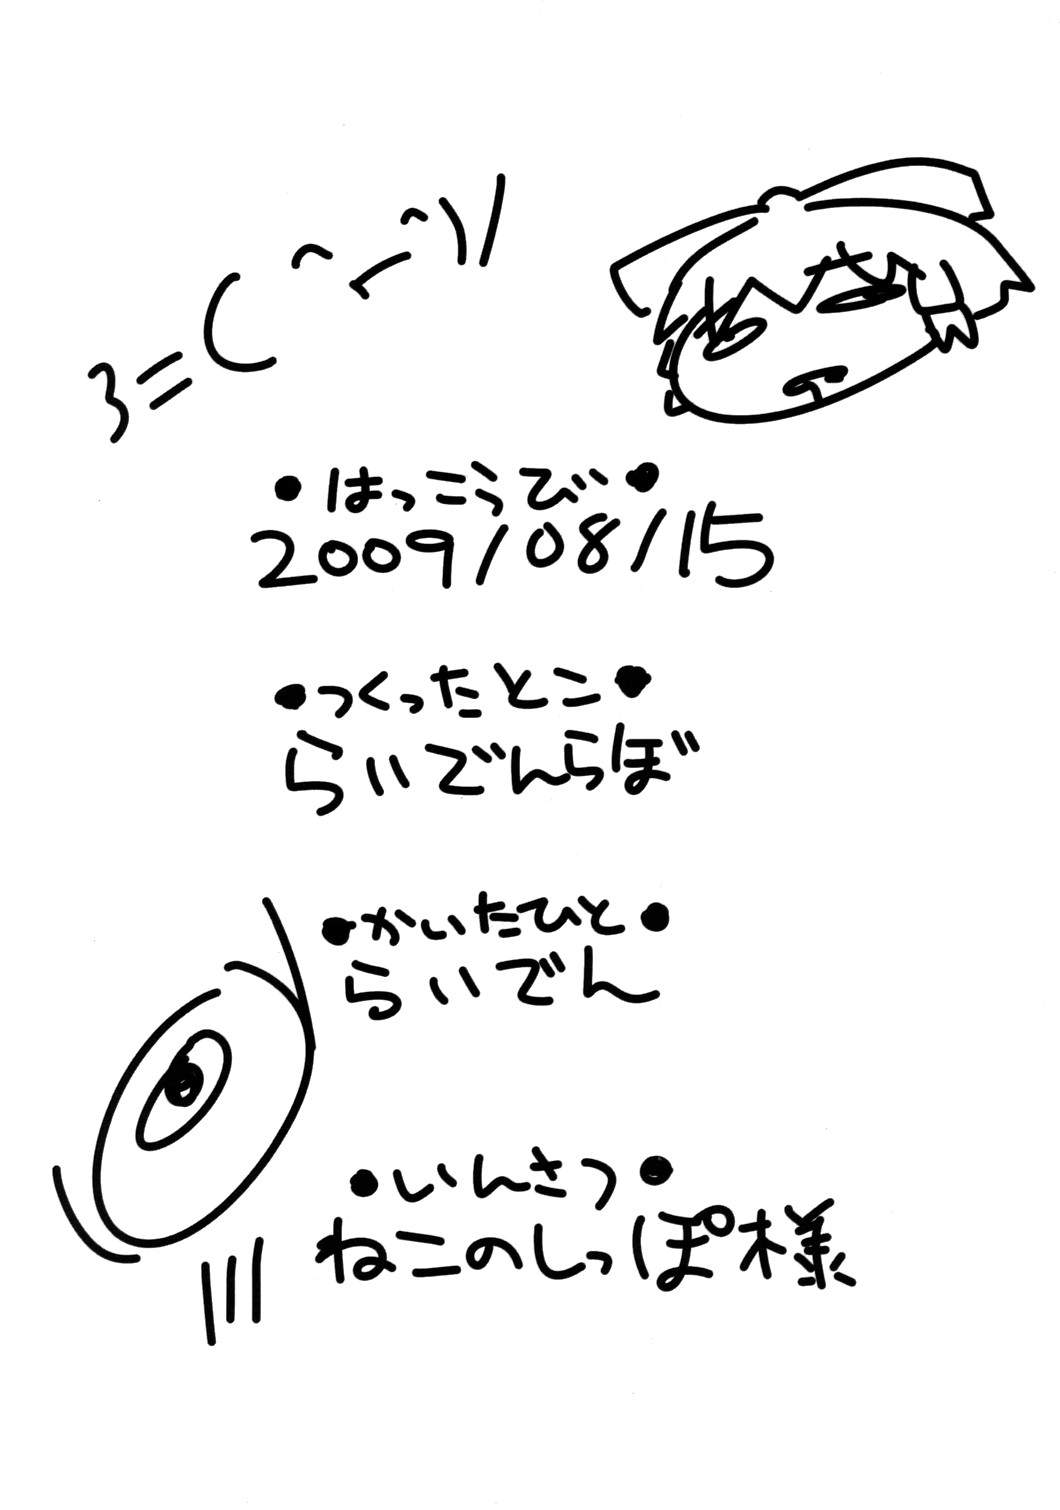 3=(^_^)/
●はっこうび●
2009/08/15
●つくったとこ●
らいでんらぼ
●かいたひと●
らいでん
●いんさつ●
ねこのしっぽ様